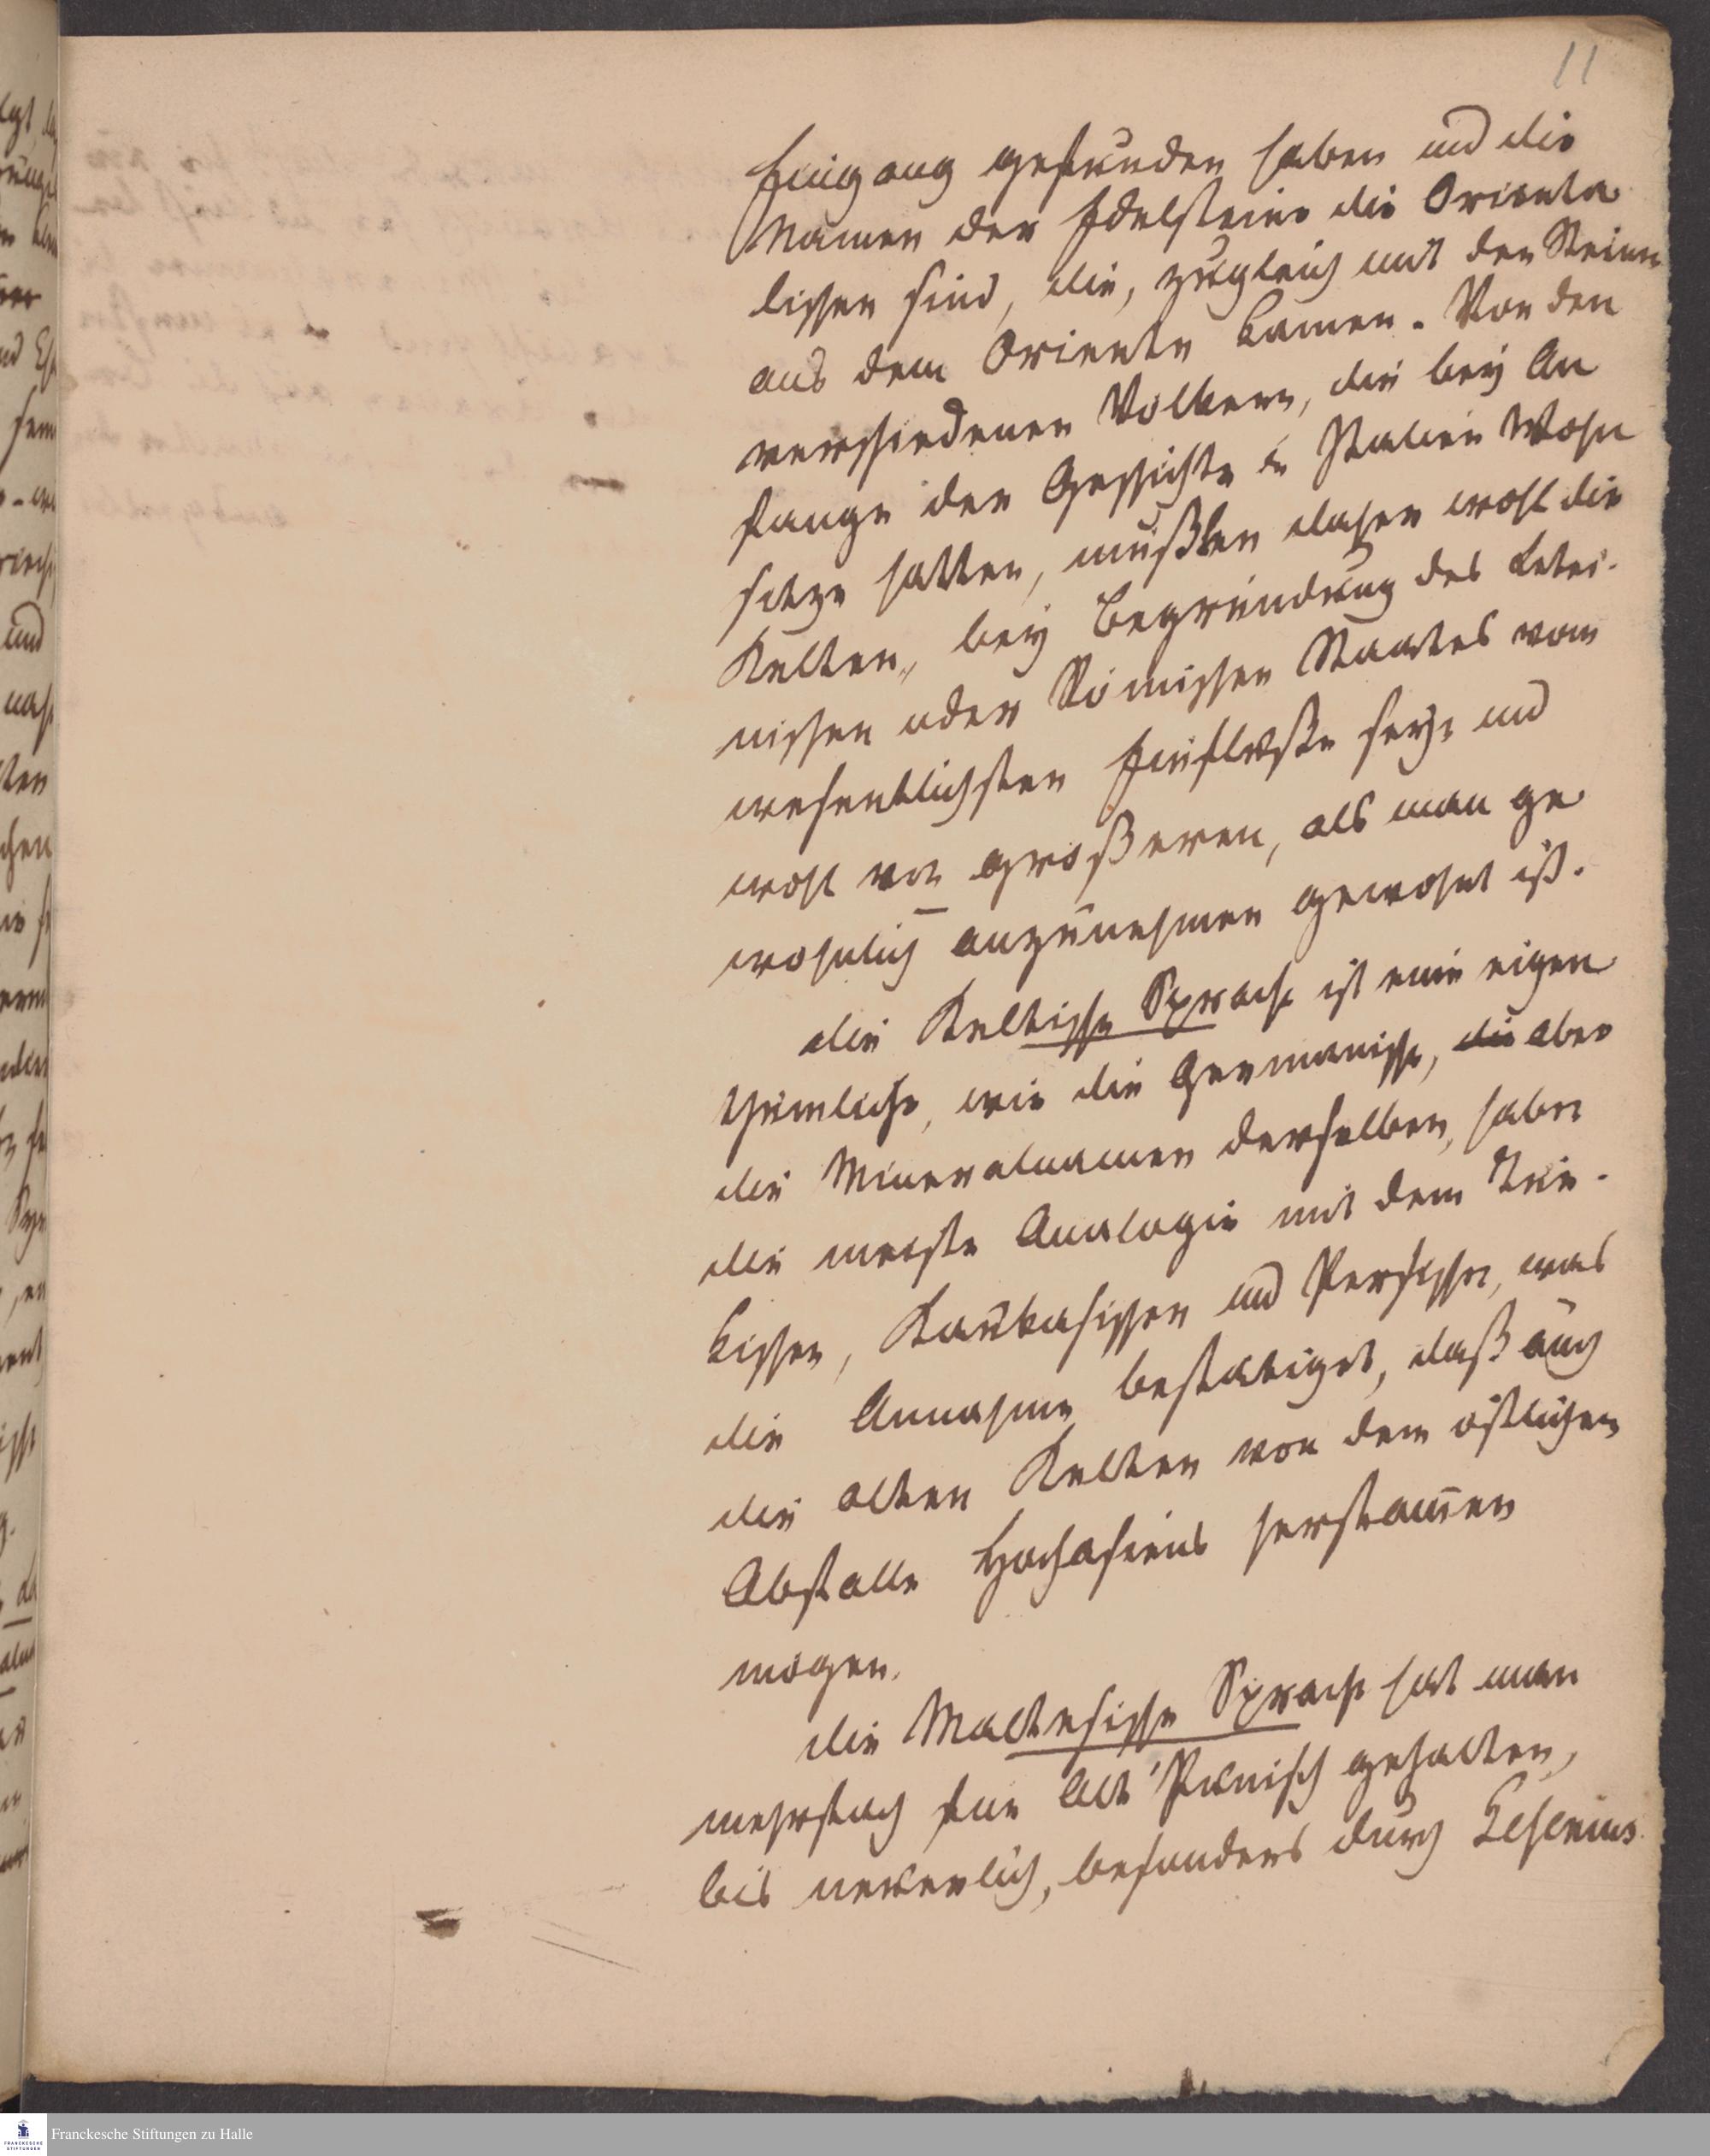 11
Eingang gefunden haben und die
Namen der Edelsteine die Orienta
lischen sind, die, zugleich mit den Steinen
aus dem Oriente kamen. Von den
verschiedenen Völkern, die bey An
fange der Geschichte in Italien Wohn
sitze hatten, mußten daher wohl die
Kelten, bey Begründung des Latei-
nischen oder Römischen Staates vom
wesentlichsten Einflusse seyn und
wohl von größeren, als man ge
wöhnlich anzunehmen gewohnt ist.
die Keltische Sprache ist eine eigen
thümliche, wie die Germanische, die aber
die Mineralnamen derselben, haben
die meiste Analogie mit dem Tür-
kischen, Kaukasischen und Persischen, was
die Annahme bestätiget, daß auch
die alten Kelten von dem östlichen
Abfalle Hochasiens herstammen
mögen.
die Maltesische Sprache hat man
mehrfach für Alt Punisch gehalten,
bis neuerlich, besonders durch Gesenius
Franckesche Stiftungen zu Halle